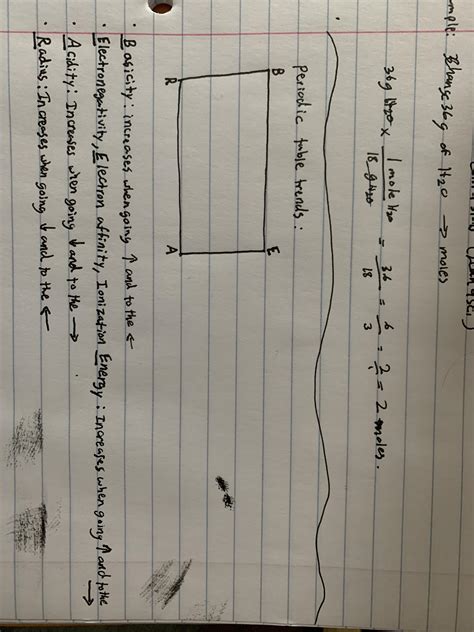 mple: Change 36g of H₂O → moles
36g H₂O × 1 mole H₂O / 18 g H₂O = 36/18 = 6/3 = 2/1 = 2 moles.
Periodic table trends:
B E
R A
• Basicity: increases when going ↑ and to the ←
• Electronegativity, Electron affinity, Ionization Energy: Increases when going ↑ and to the →
• Acidity: Increases when going ↓ and to the →.
• Radius: Increases when going ↓ and to the ←